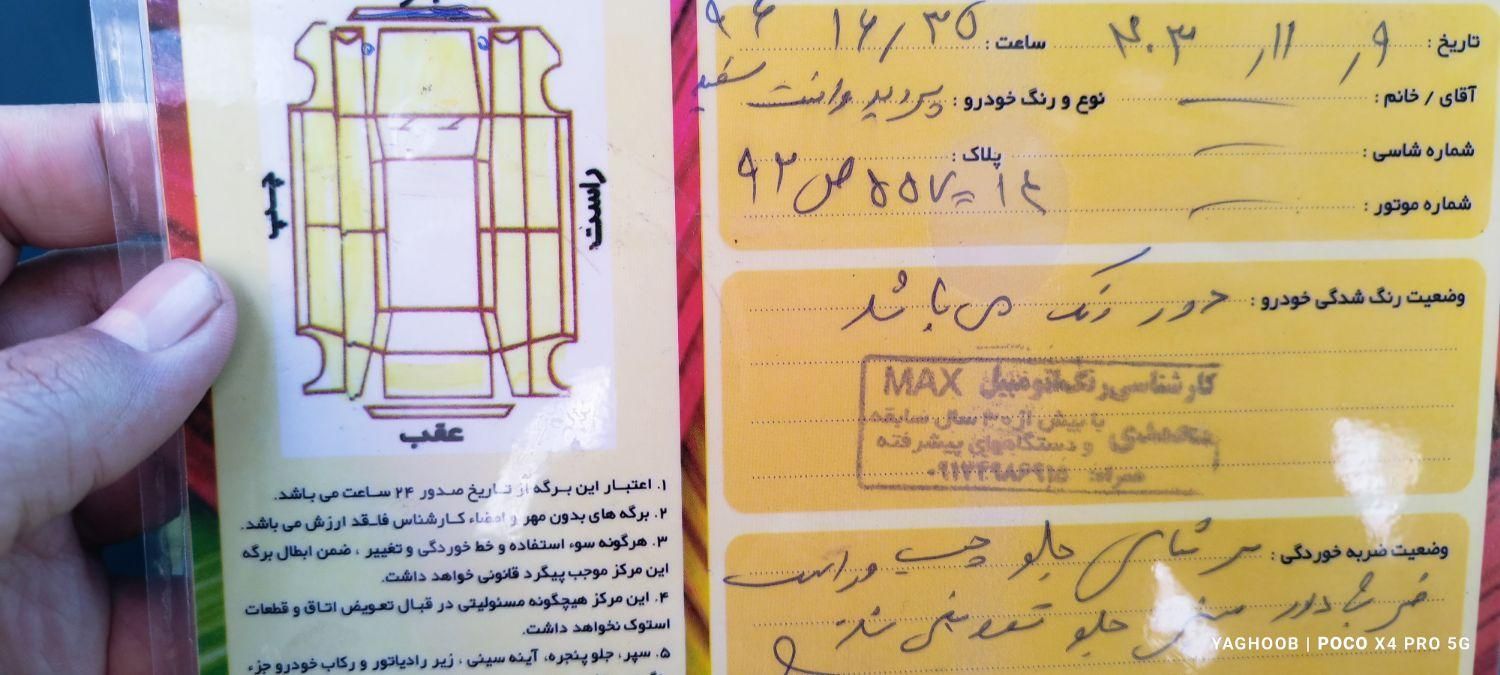 راست
چپ
عقب
۱. اعتبار این برگه از تاریخ صدور ۲۴ ساعت می باشد.
۲. برگه های بدون مهر و امضاء کارشناس فاقد ارزش می باشد.
۳. هرگونه سوء استفاده و خط خوردگی و تغییر ، ضمن ابطال برگه
این مرکز موجب پیگرد قانونی خواهد داشت.
۴. این مرکز هیچگونه مسئولیتی در قبال تعویض اتاق و قطعات
استوک نخواهد داشت.
۵. سپر، جلو پنجره، آینه سینی ، زیر رادیاتور و رکاب خودرو جزء
تاریخ : ۹ / ۱۱ / ۴۰۳ ساعت : ۱۶/۳۵
آقای / خانم : نوع و رنگ خودرو : پراید وانت سفید
شماره شاسی : پلاک :
شماره موتور :
وضعیت رنگ شدگی خودرو : دور رنگ می باشد
کارشناسی رنگ اتومبیل MAX
با بیش از ۳۰ سال سابقه
و دستگاههای پیشرفته
همراه: ۰۹۱۲۴۹۸۶۹۱۵
وضعیت ضربه خوردگی : سر شاسی جلو چپ و راست
ضربه دارد سینی جلو تعویض شد
YAGHOOB | POCO X4 PRO 5G